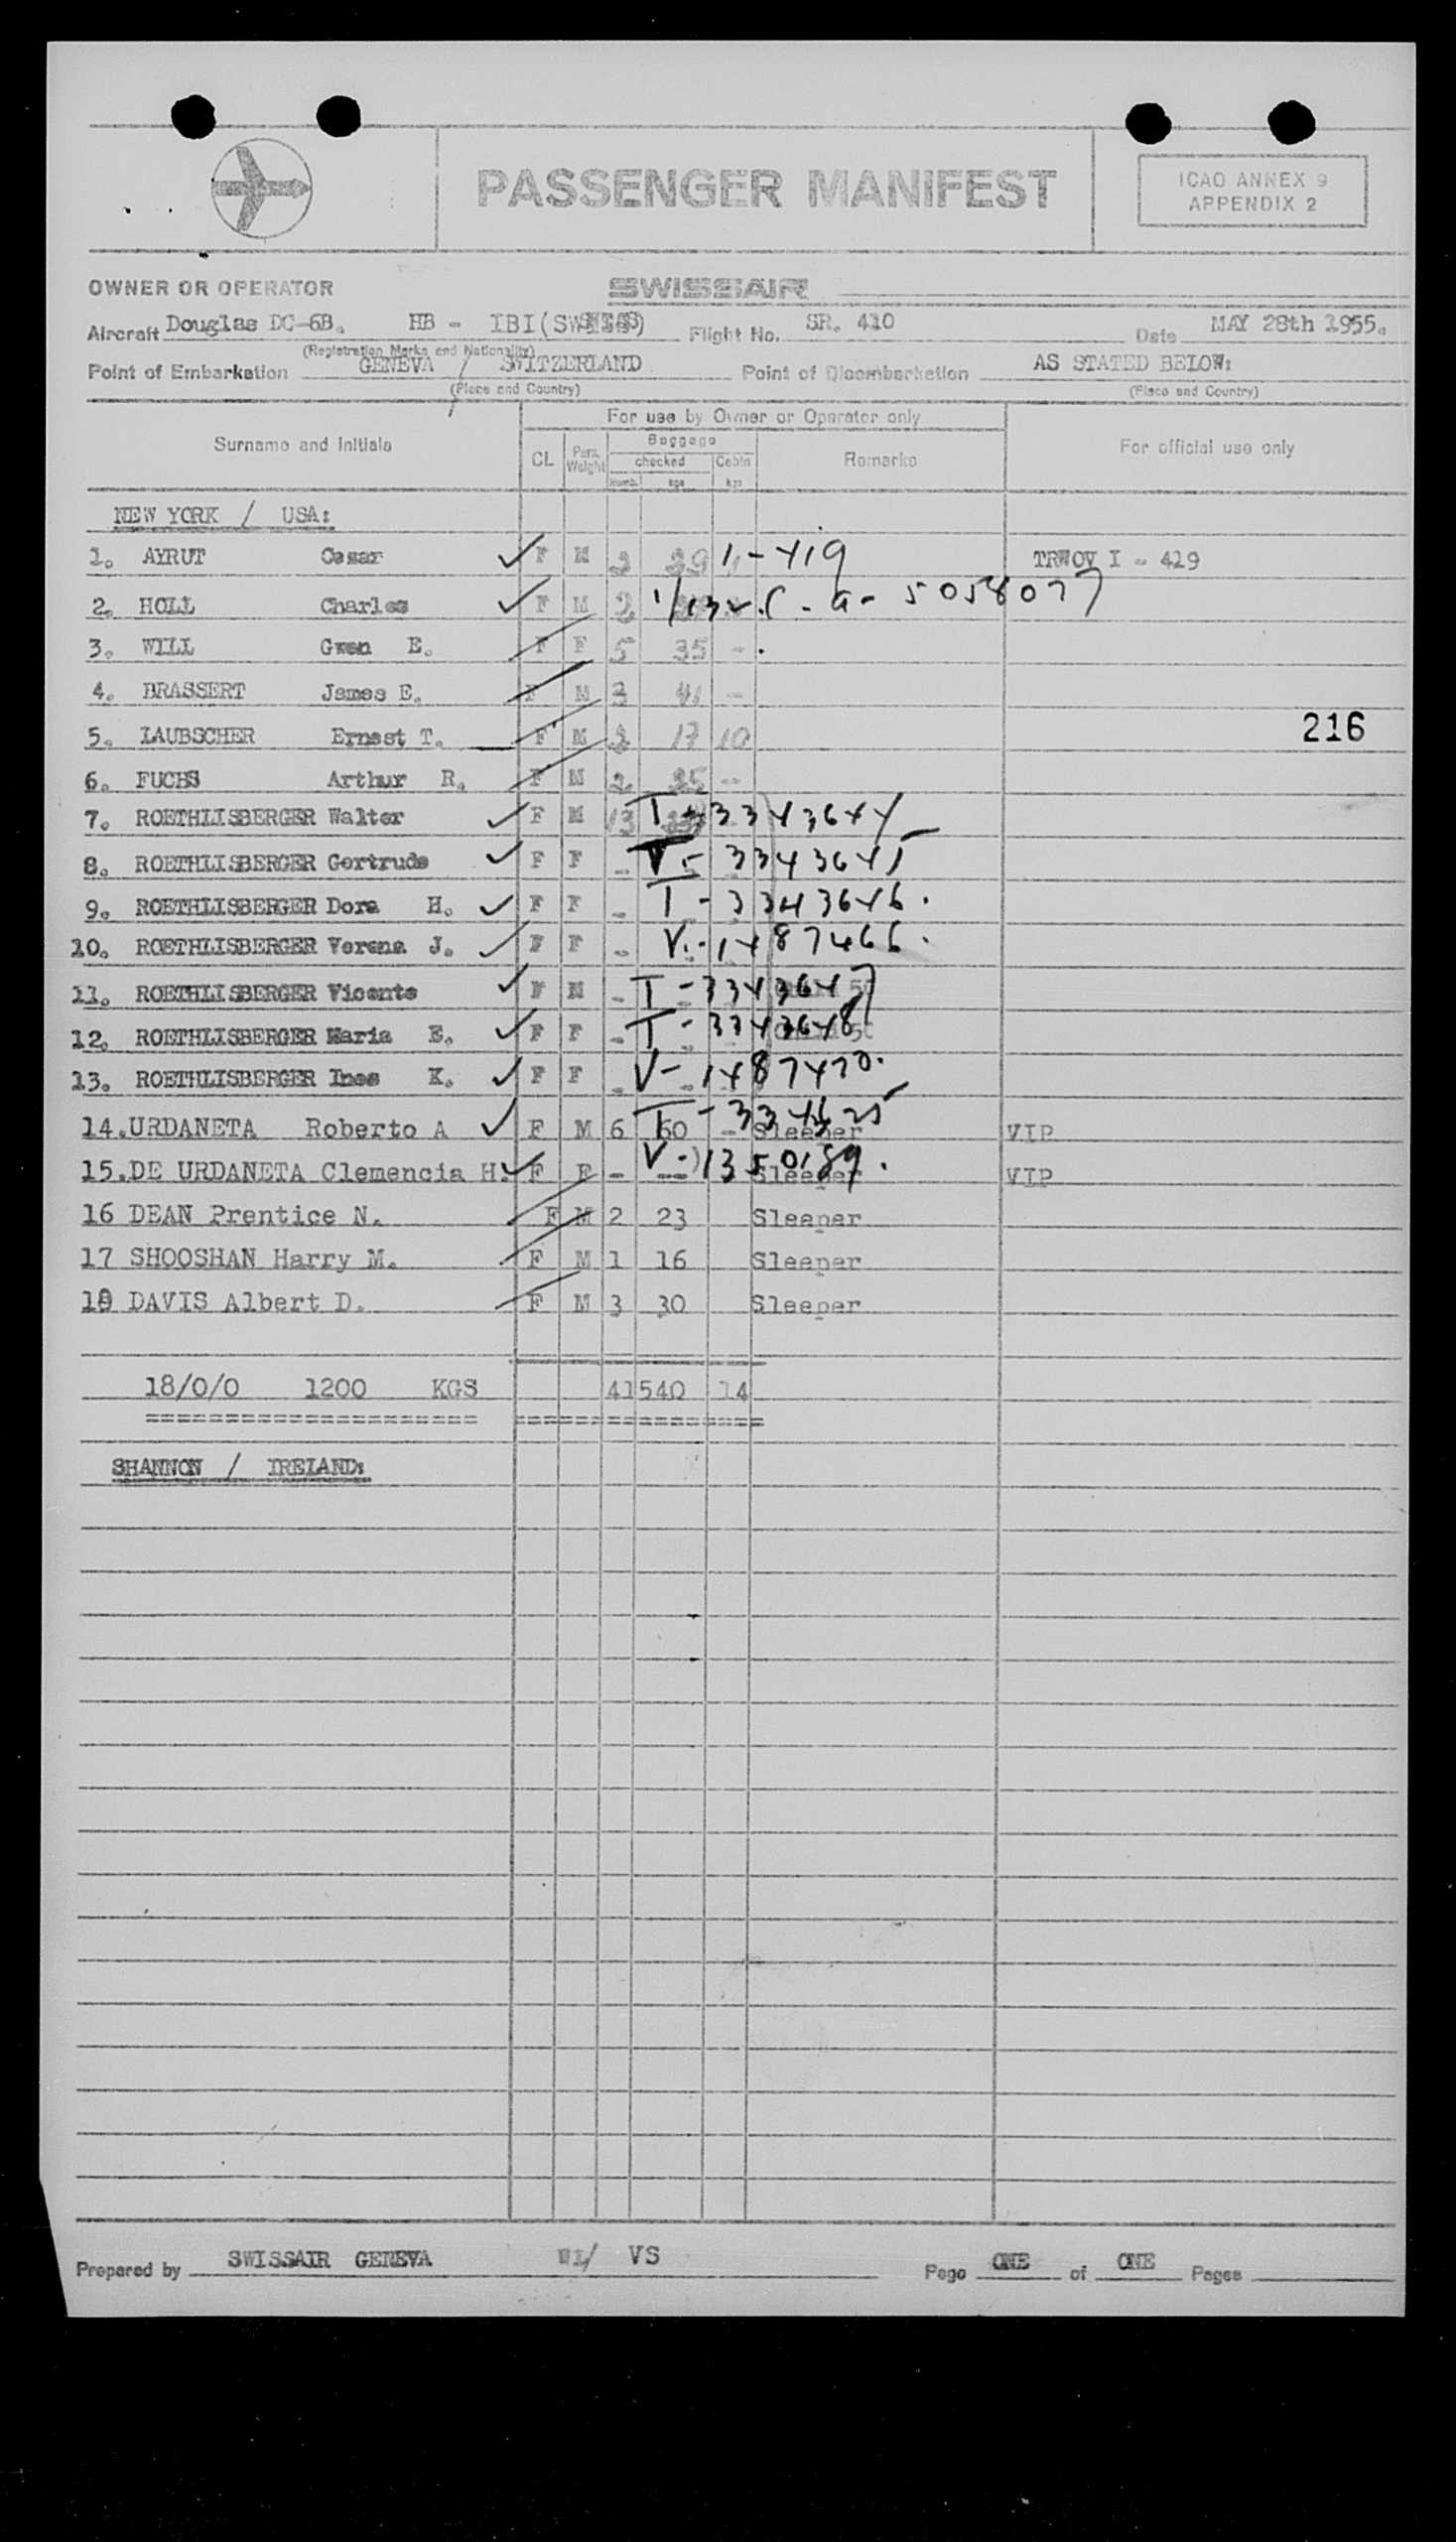 PASSENGER MANIFEST
ICAO ANNEX 9
APPENDIX 2
OWNER OR OPERATOR SWISSAIR
Aircraft Douglas DC-6B. HB - IBI (SWISS) Flight No. SR. 410 Date MAY 28th 1955.
(Registration Marks and Nationality)
Point of Embarkation GENEVA / SWITZERLAND Point of Disembarkation AS STATED BELOW:
(Place and Country) (Place and Country)
For use by Owner or Operator only
Surname and Initials CL Pers. Weight Baggage Remarks For official use only
checked Cabin
Numb. kgs kgs
NEW YORK / USA:
1. AYRUT Cesar F M 2 29 1-419 TRWOV I - 419
2. HOLL Charles F M 2 a- 5058077
3. WILL Gwen E. F F 5 35 -
4. BRASSERT James E. F M 3 41 -
5. LAUBSCHER Ernest T. F M 2 17 10
6. FUCHS Arthur R. F M 2 25 --
7. ROETHLISBERGER Walter F M 13 T-3343644
8. ROETHLISBERGER Gertrude F F - T- 3343645
9. ROETHLISBERGER Dora H. F F - T-3343646.
10. ROETHLISBERGER Verena J. F F - V-1487466.
11. ROETHLISBERGER Vicente F M - T-3343647
12. ROETHLISBERGER Maria E. F F - T-3343648
13. ROETHLISBERGER Ines K. F F - V-1487470.
14. URDANETA Roberto A F M 6 60 - T- Sleeper VIP
15. DE URDANETA Clemencia H. F F - -- V-1350189. Sleeper VIP
16 DEAN Prentice N. F M 2 23 Sleeper
17 SHOOSHAN Harry M. F M 1 16 Sleeper
18 DAVIS Albert D. F M 3 30 Sleeper
216
18/0/0 1200 KGS 41 540 14
SHANNON / IRELAND:
Prepared by SWISSAIR GENEVA / VS Page ONE of ONE Pages